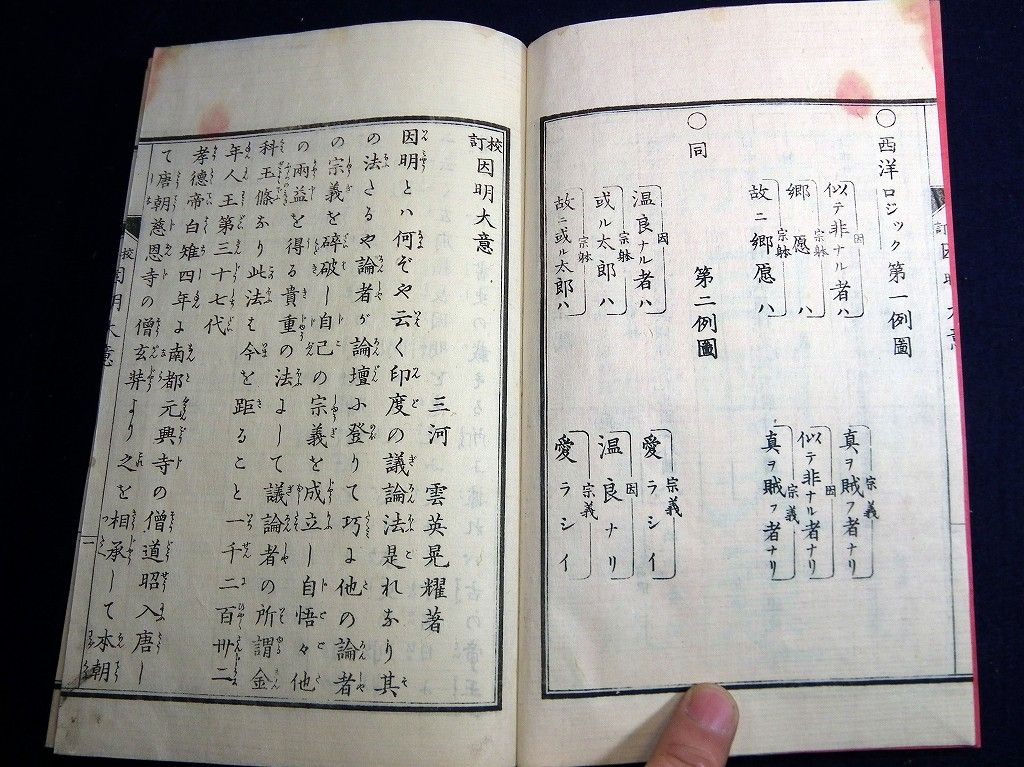 ○西洋ロジック第一例圖
似テ非ナル者ハ 真ヲ賊フ者ナリ
因 宗義
郷愿ハ 似テ非ナル者ナリ
宗躰 因
故ニ郷愿ハ 真ヲ賊フ者ナリ
宗躰 宗義
○同 第二例圖
温良ナル者ハ 愛ラシイ
因 宗義
或ル太郎ハ 温良ナリ
宗躰 因
故ニ或ル太郎ハ 愛ラシイ
宗躰 宗義
校訂因明大意
三河 雲英晃耀著
因明とハ何ぞや云く印度の議論法是れなり其
の法たるや論者が論壇ふ登りて巧に他の論者
の宗義を碎破し自己の宗義を成立し自悟々他
の兩益を得る貴重の法よして議論者の所謂金
科玉條なり此法も今を距ること一千二百卅二
年人王第三十七代
孝德帝白雉四年よ南都元興寺の僧道昭入唐し
て唐朝慈恩寺の僧玄弉より之を相承して本朝
校訂因明大意